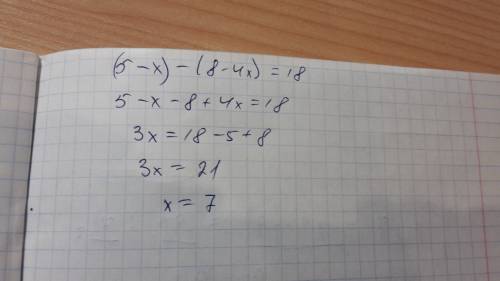 (5-x)-(8-4x)=18
5-x-8+4x=18
3x=18-5+8
3x=21
x=7